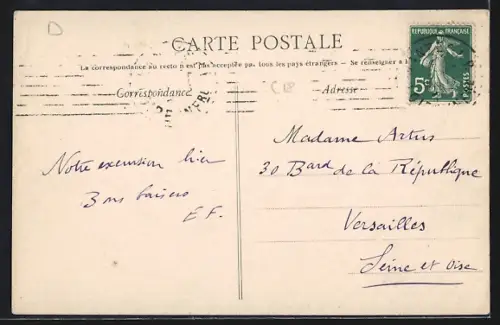 D
CARTE POSTALE
RÉPUBLIQUE FRANÇAISE
5c
POSTES
La correspondance au recto n'est pas acceptée par tous les pays étrangers — Se renseigner à
Correspondance
C 18
Adresse
Notre excursion hier
Bons baisers
E F.
Madame Artus
30 Bard de la République
Versailles
Seine et Oise